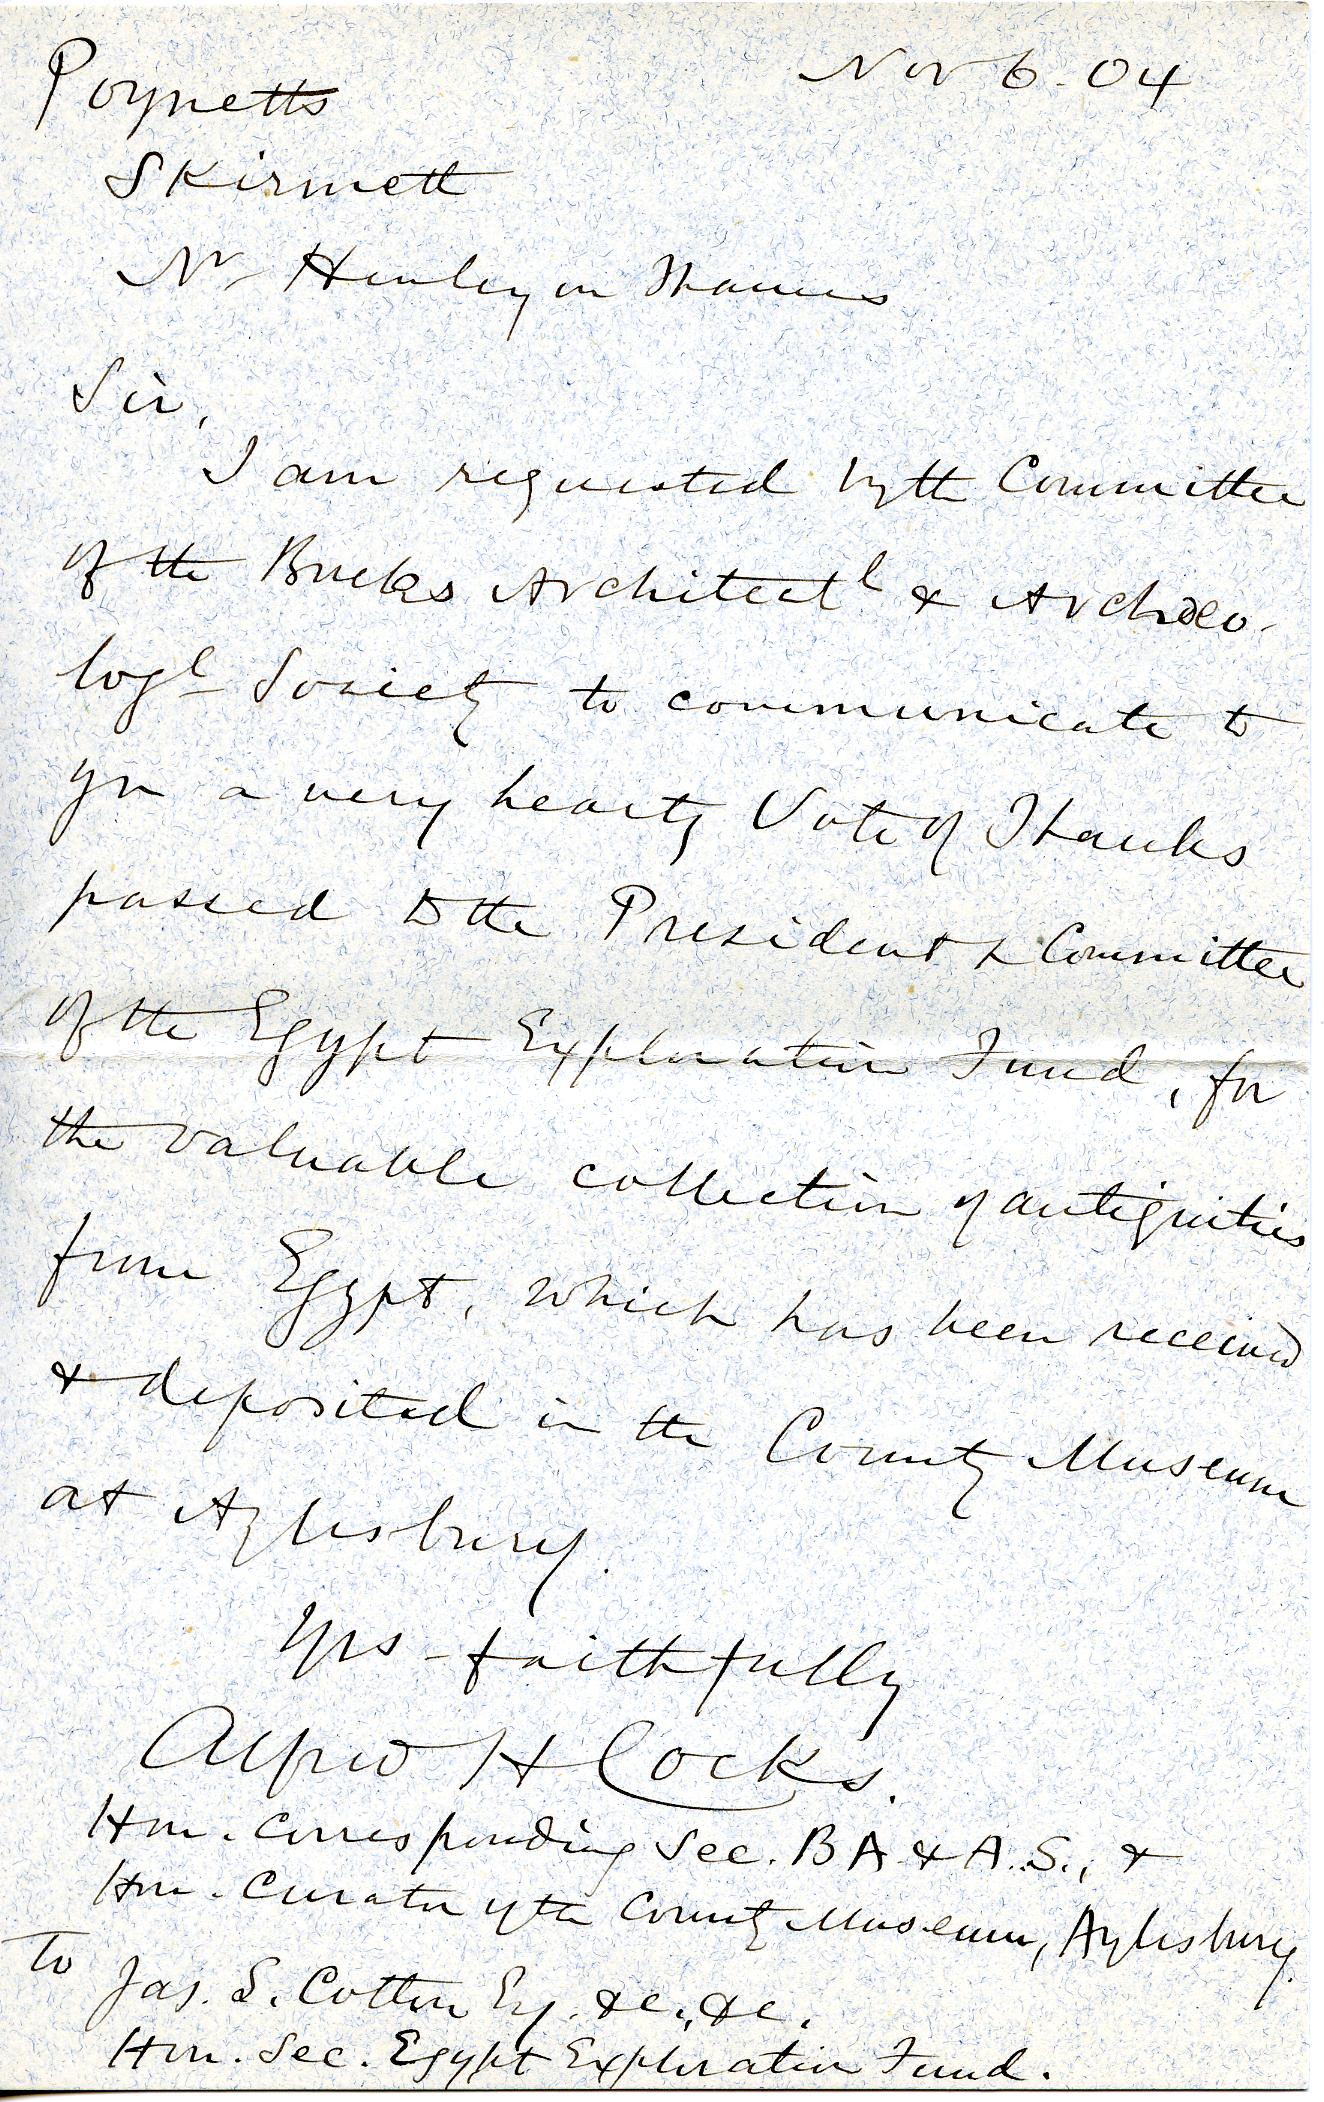 Poynetts Nov 6. 04
Skirmett
Nr Henley on Thames
Sir,
I am requested by the Committee
of the Bucks Architectl & Archæo-
logl Society to communicate to
you a very hearty Vote of Thanks
passed to the President & Committee
of the Egypt Exploration Fund, for
the valuable collection of antiquities
from Egypt, which has been received
& deposited in the County Museum
at Aylesbury.
Yrs faithfully
Alfred H Cocks.
Hon. Corresponding Sec. B A & A. S., &
Hon. Curator of the County Museum, Aylesbury.
To Jas. S. Cotton Esq. &c., &c.
Hon. Sec. Egypt Exploration Fund.